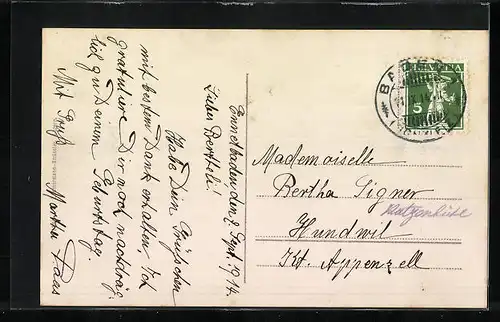 Ennetbaden den 2. Sept. 1914.
Liebes Bertheli!
Habe Dein Grüsschen
mit bestem Dank erhalten. Ich
gratuliere Dir noch nachträg-
lich zu Deinem Geburtstag.
Mit Gruß Martha
Mademoiselle
Bertha Signer
Hundwil
Kt. Appenzell
HELVETIA
5